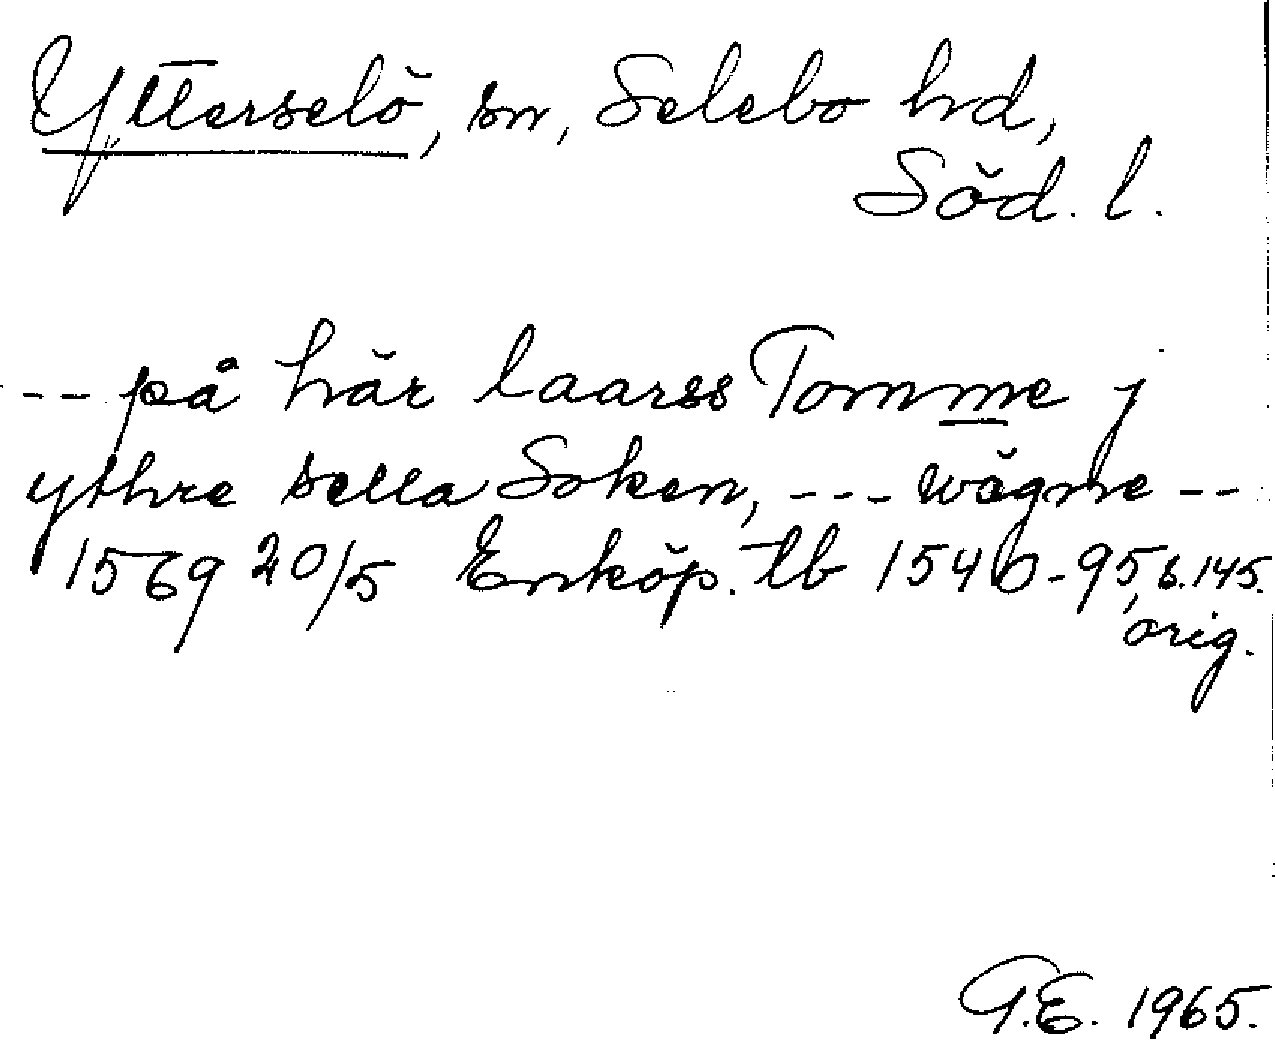 Ytterselö, sn, Selebo hd,
Söd. l.
--- på här laarss Tomme j
ythre sella Soken, --- wägne --
1569 20/5 Enköp. tb 1540-95, s. 145.
orig.
G.E. 1965.